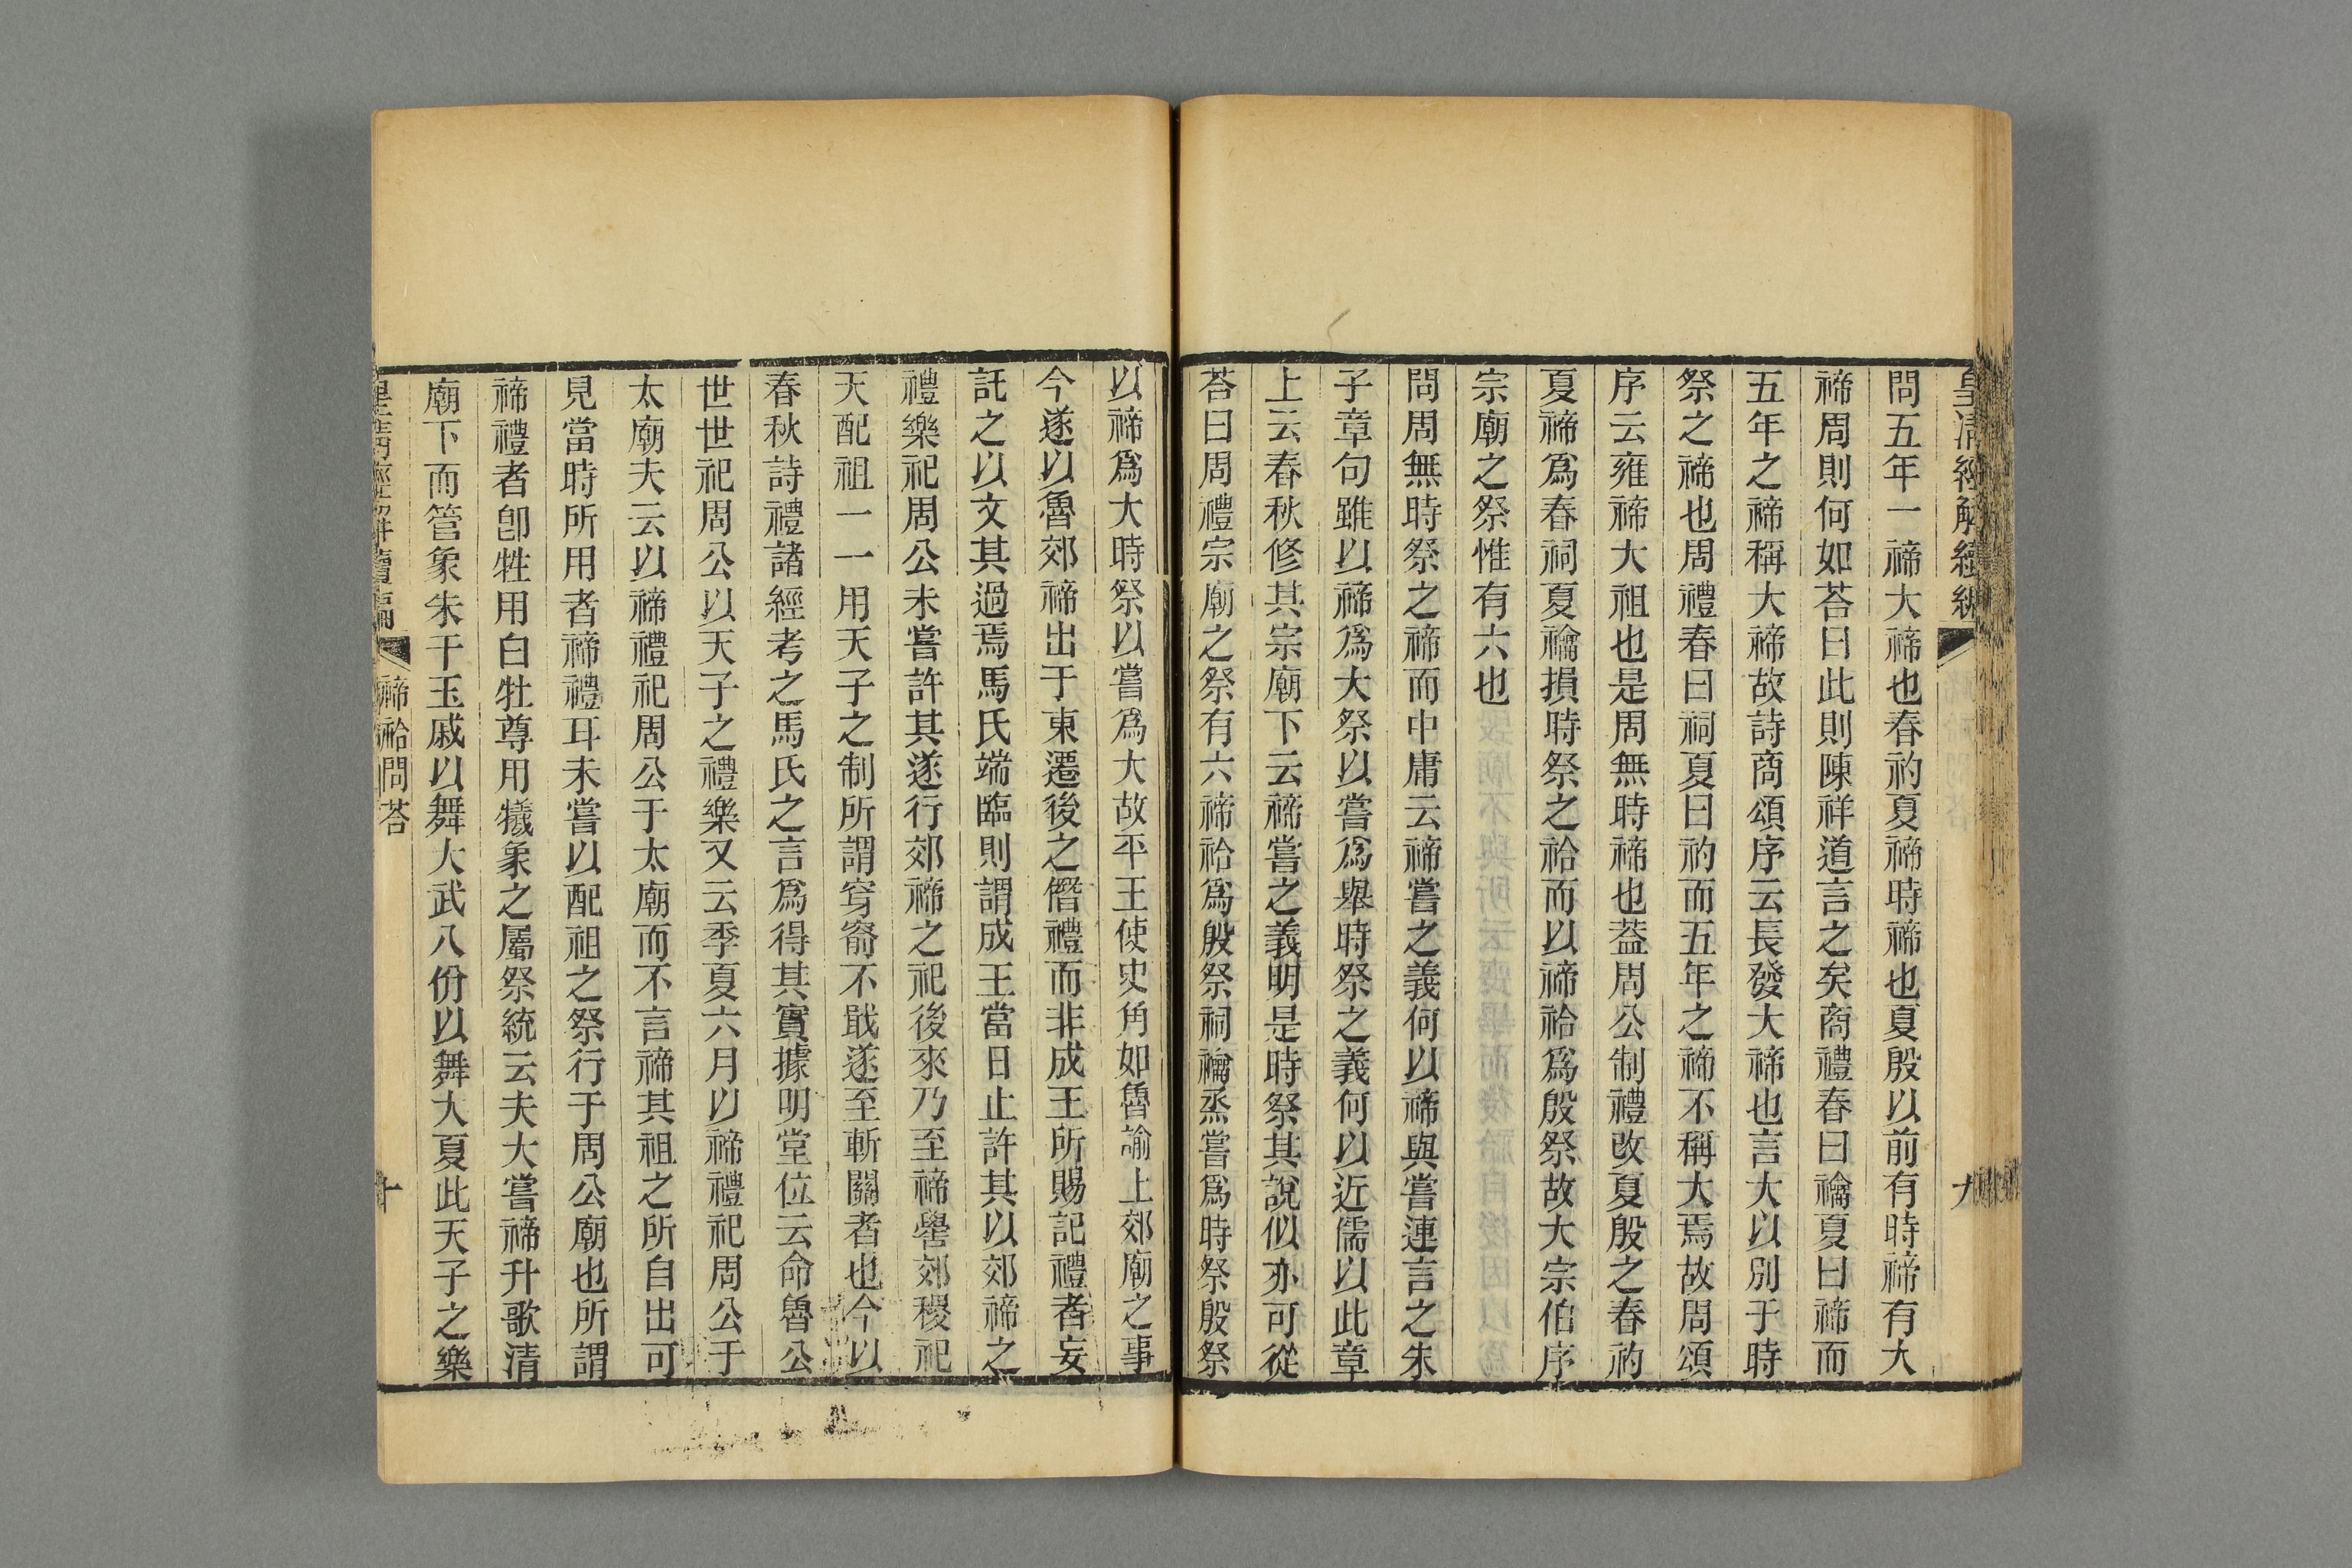 皇清經解續編
九
問五年一禘大禘也春礿夏禘時禘也夏殷以前有時禘有大
禘周則何如荅曰此則陳祥道言之矣商禮春曰禴夏曰禘而
五年之禘稱大禘故詩商頌序云長發大禘也言大以別于時
祭之禘也周禮春曰祠夏曰礿而五年之禘不稱大焉故周頌
序云雍禘大祖也是周無時禘也葢周公制禮改夏殷之春礿
夏禘爲春祠夏禴損時祭之祫而以禘祫爲殷祭故大宗伯序
宗廟之祭惟有六也
問周無時祭之禘而中庸云禘嘗之義何以禘與嘗連言之朱
子章句雖以禘爲大祭以嘗爲舉時祭之義何以近儒以此章
上云春秋修其宗廟下云禘嘗之義明是時祭其說似亦可從
荅曰周禮宗廟之祭有六禘祫爲殷祭祠禴烝嘗爲時祭殷祭
以禘爲大時祭以嘗爲大故平王使史角如魯諭上郊廟之事
今遂以魯郊禘出于東遷後之僭禮而非成王所賜記禮者妄
託之以文其過焉馬氏端臨則謂成王當日止許其以郊禘之
禮樂祀周公未嘗許其遂行郊禘之祀後來乃至禘嚳郊稷祀
天配祖一一用天子之制所謂穿窬不戢遂至斬關者也今以
春秋詩禮諸經考之馬氏之言爲得其實據明堂位云命魯公
世世祀周公以天子之禮樂又云季夏六月以禘禮祀周公于
太廟夫云以禘禮祀周公于太廟而不言禘其祖之所自出可
見當時所用者禘禮耳未嘗以配祖之祭行于周公廟也所謂
禘禮者卽牲用白牡尊用犧象之屬祭統云夫大嘗禘升歌清
廟下而管象朱干玉戚以舞大武八佾以舞大夏此天子之樂
皇清經解續編
禘祫問荅
十